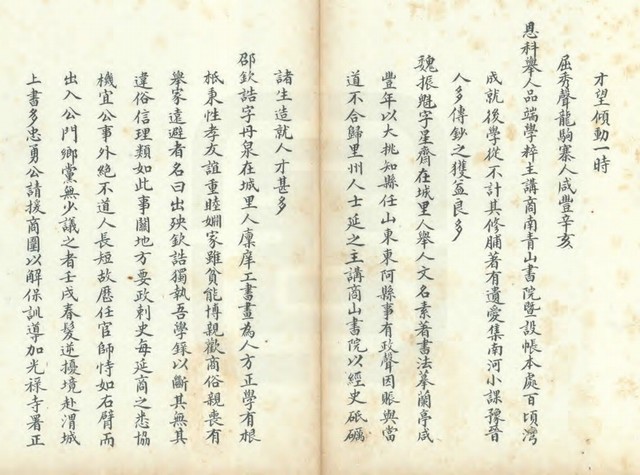 才望傾動一時
屈秀聲龍駒寨人咸豐辛亥
恩科舉人品端學粹主講商南青山書院暨設帳本處百頃灣
成就後學從不計其修脯著有遺愛集南河小課豫晉
人多傳鈔之獲益良多
魏振魁字星齊在城里人舉人文名素著書法摹蘭亭咸
豐年以大挑知縣任山東東阿縣事有政聲因賬與當
道不合歸里州人士延之主講商山書院以經史砥礪
諸生造就人才甚多
邵欽誥字丹泉在城里人廪庠工書畫為人方正學有根
柢東性孝友誼重睦婣家雖貧能博親歡商俗親喪有
舉家遠避者名曰出殃欽誥獨執吾學錄以斷其無其
違俗信理類如此事關地方要政刺史每延商之悉協
機宜公事外絶不道人長短故歷任官師恃如右臂而
出入公門鄉黨無少議之者壬戌春髮逆擾境赴渭城
上書多忠勇公請援商圍以解保訓導加光祿寺署正